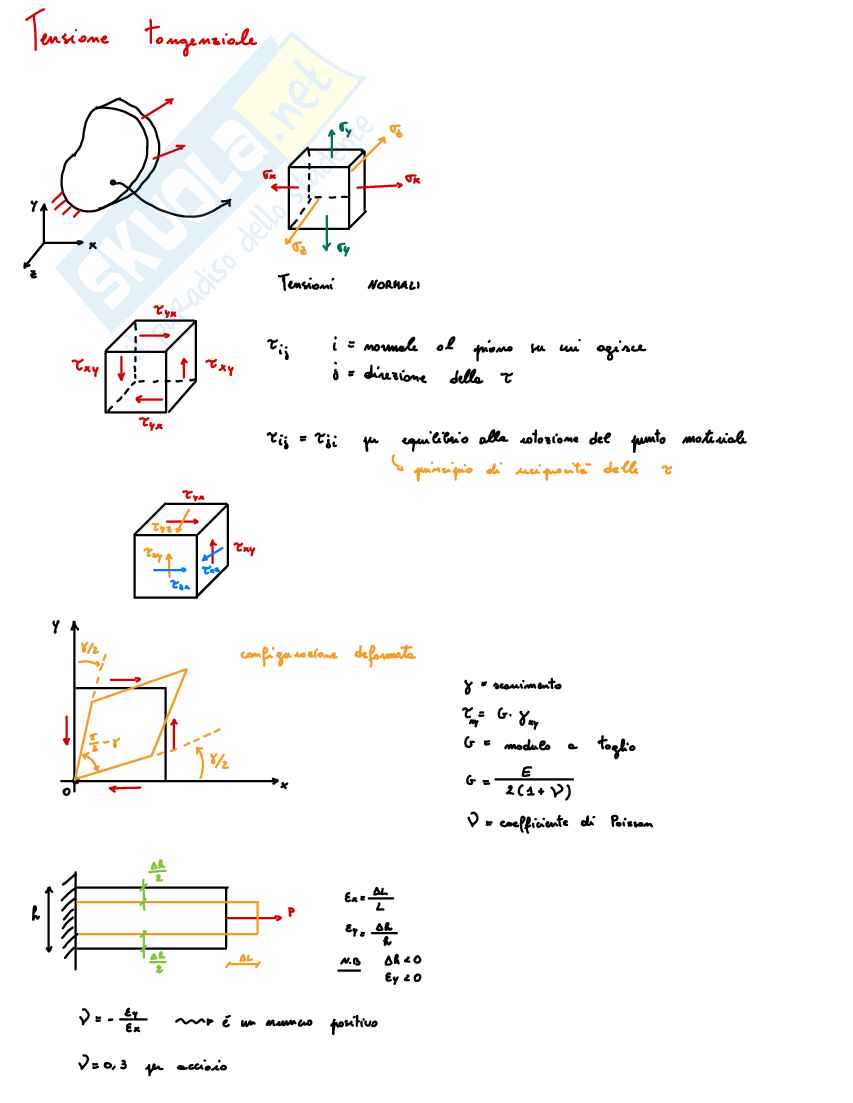 Tensione tangenziale
SKUOLA.net
paradiso dello studente
σy
σz
σx
σx
σz
σy
y
x
z
Tensioni NORMALI
τyx
τxy
τxy
τyx
τij i = normale al piano su cui agisce
j = direzione della τ
τij = τji per equilibrio alla rotazione del punto materiale
principio di reciprocità delle τ
τyx
τyz
τxy
τzy
τzx
y
γ/2
configurazione deformata
π/2 - γ
γ/2
O
x
γ = scorrimento
τxy = G · γxy
G = modulo a taglio
G = E / 2(1+ν)
ν = coefficiente di Poisson
Δh/2
h
P
Δh/2
ΔL
εx = ΔL/L
εy = Δh/h
N.B Δh < 0
εy < 0
ν = - εy/εx è un numero positivo
ν = 0,3 per acciaio